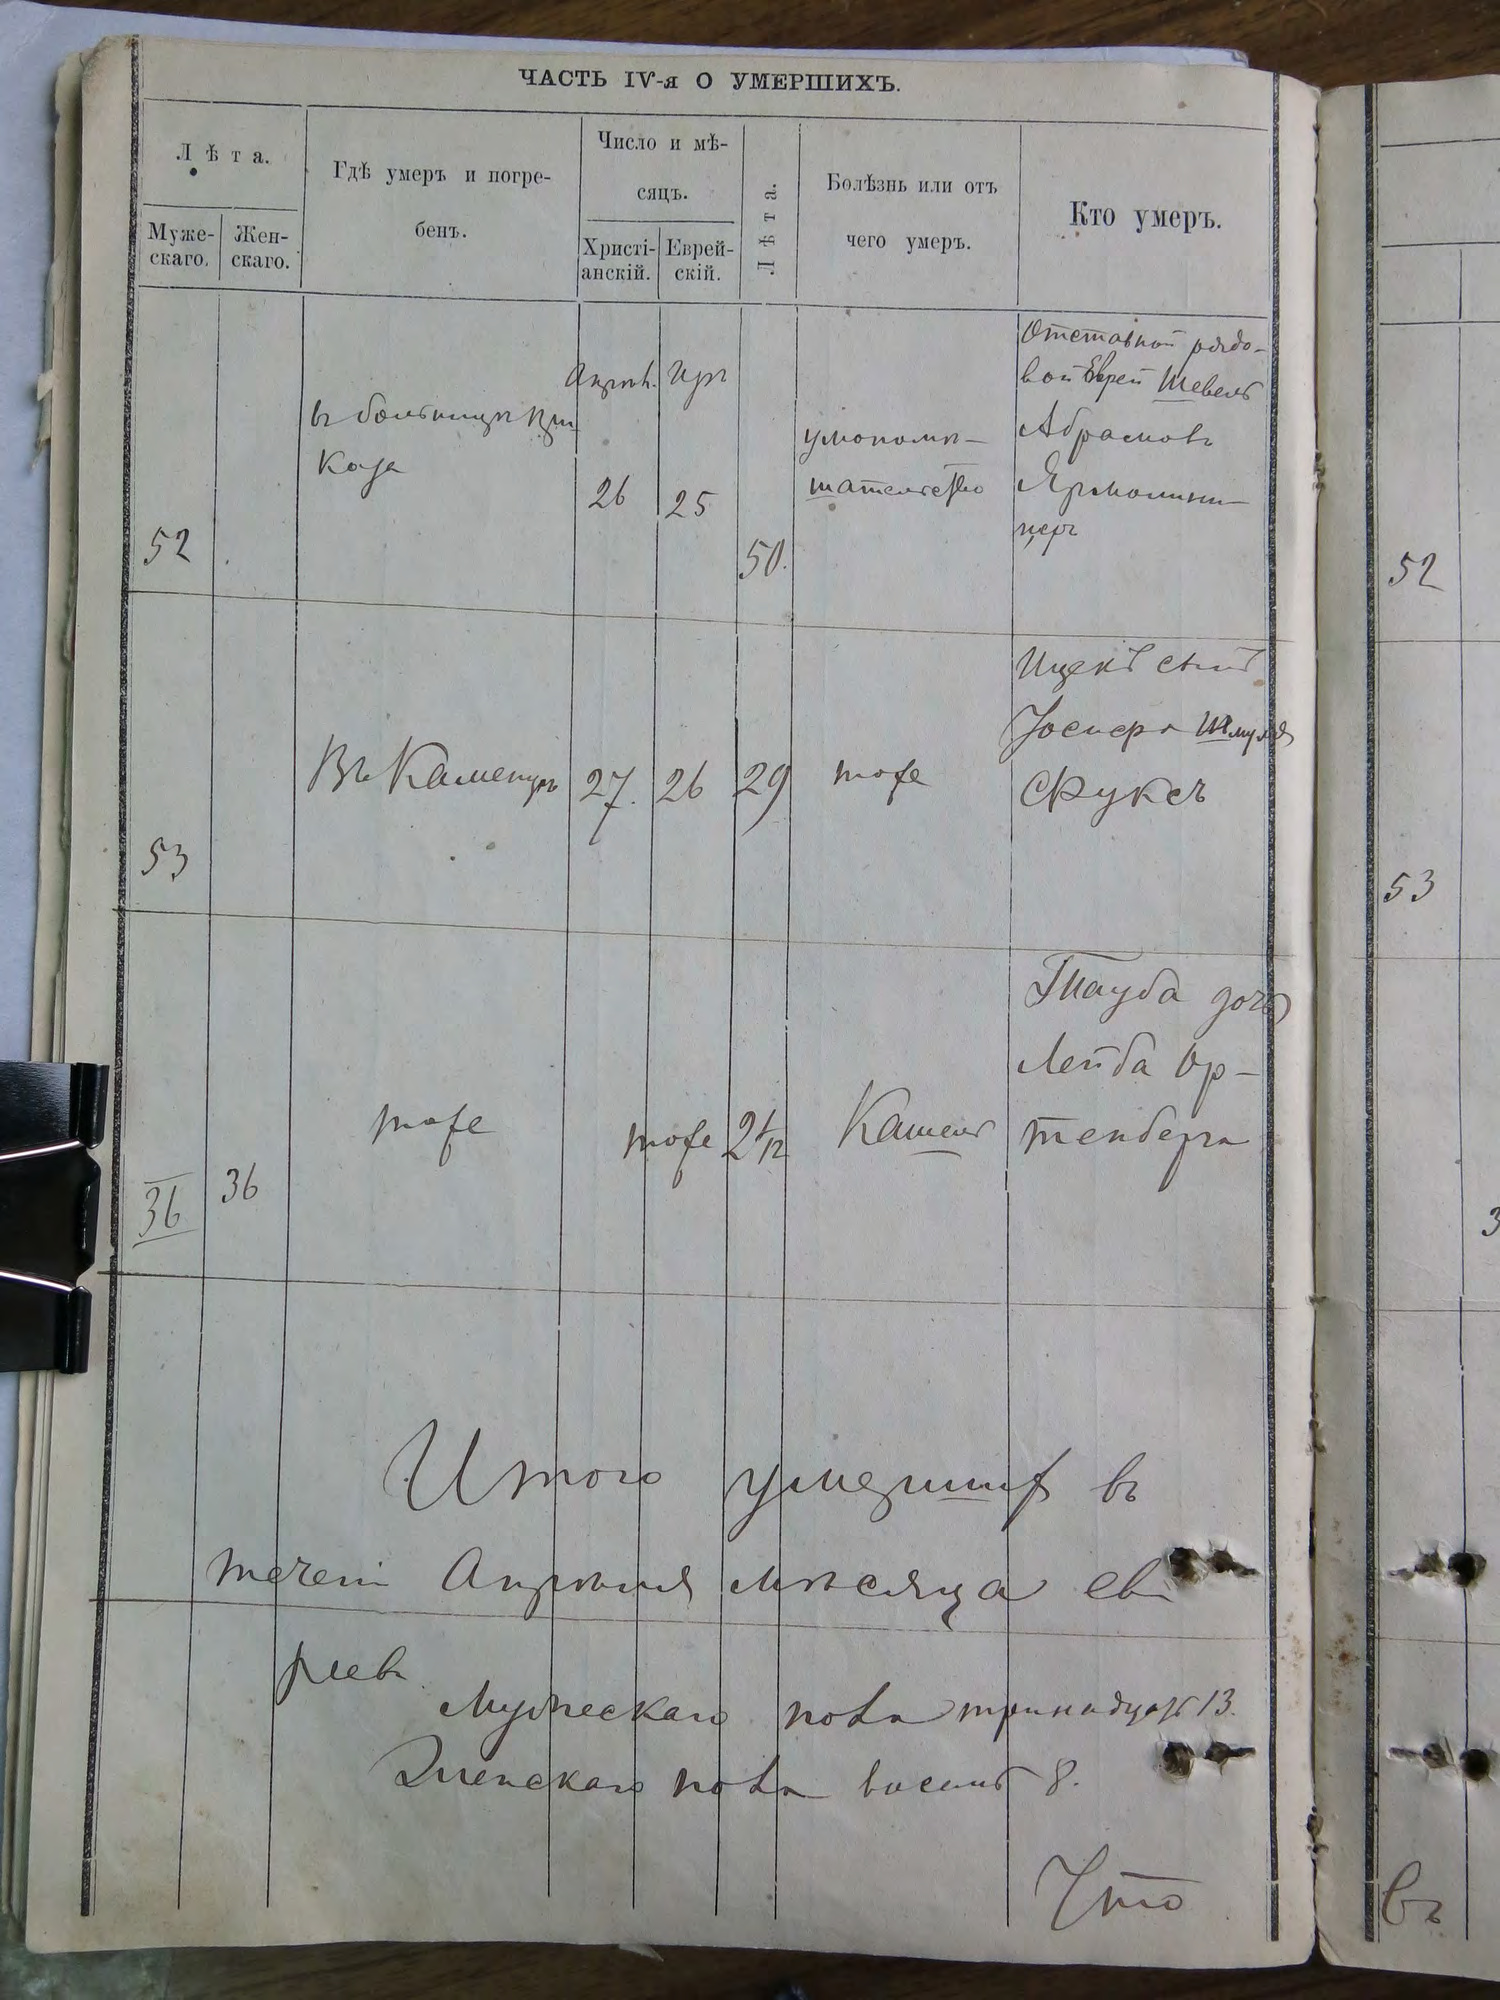 ЧАСТЬ IV-я О УМЕРШИХЪ.
Лѣта.
Муже-
скаго.
Жен-
скаго.
Гдѣ умеръ и погре-
бенъ.
Число и мѣ-
сяцъ.
Христі-
анскій.
Еврей-
скій.
Лѣта.
Болѣзнь или отъ
чего умеръ.
Кто умеръ.
52
въ больницѣ при-
каза
Апрѣл.
26
Иръ
25
50.
умопомѣ-
шательство
Отставной рядо-
вой Еврей Шевель
Абрамовъ
Ярмолини-
церъ
53
Въ Каменцѣ
27.
26
29
тоже
Ицекъ сынъ
Іосифа Шмуля
Фуксъ
36
36
тоже
тоже
2 1/12
Кашель
Тауба дочь
Лейба Ор-
тенберга
Итого умершихъ въ
течені Апрѣля мѣсяца ев-
реевъ
Мужескаго пола тринадцать 13.
Женскаго пола восемь 8.
Что
52
53
3
Въ